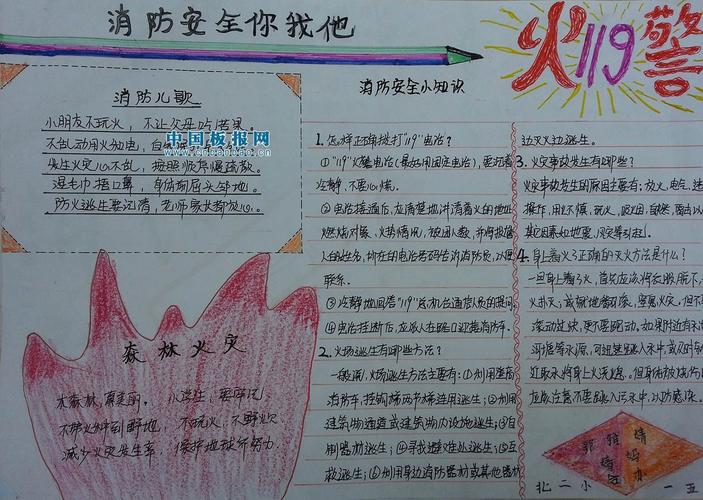 消防安全你我他
火119警
消防儿歌
小朋友不玩火，不让父母吃苦果。
不乱动用火知电，自
中国板报网
www.cnbanbao.cn
发生火灾心不乱，按照顺序慢疏散。
湿毛巾捂口鼻，身体前屈头部地。
防火逃生要记清，老师家长都放心。
森林火灾
大森林，真美丽。小学生，要牢记，
不带火种到野地，不玩火，不野炊
减少火灾发生率，保护地球齐努力。
消防安全小知识
1.怎样正确拨打"119"电话？
①"119"火警电话(最好用固定电话)，要沉着
冷静，不要心慌。
②电话接通后，应清楚地讲清着火的地址
燃烧对象、火势情况、被困人数，并将报警
人的姓名，所在的电话号码告诉消防员，以便
联系。
③冷静地回答"119"总机台通信人员的提问。
④电话挂断后，应派人在路口迎接消防车。
2.火场逃生有哪些方法？
一般讲，火场逃生方法主要有：①利用登高
消防车，挂钩梯两节梯连用逃生；②利用
建筑物通道或建筑物内设施逃生；③自
制器材逃生；④寻找避难处逃生；⑤互
救逃生；⑥利用身边消防器材或其他器材
边灭火边逃生。
3.火灾事故发生有哪些？
火灾事故发生的原因主要有：放火、电气、违
操作、用火不慎、玩火、吸烟、自燃、雷击以
其它因素如地震、风灾等引起。
4.身上着火了正确的灭火方法是什么？
一旦身上着引火，首先应该将衣服脱下，
火扑灭；或就地打滚，窒息火灾，但不
滚动过快，更不要跑动。如果附近有水
河塘等水源，可迅速跳入水中，或
近取水将身上火浇熄。但身体被烧伤
应注意不要跳入污水中，以防感染。
北二小 一五